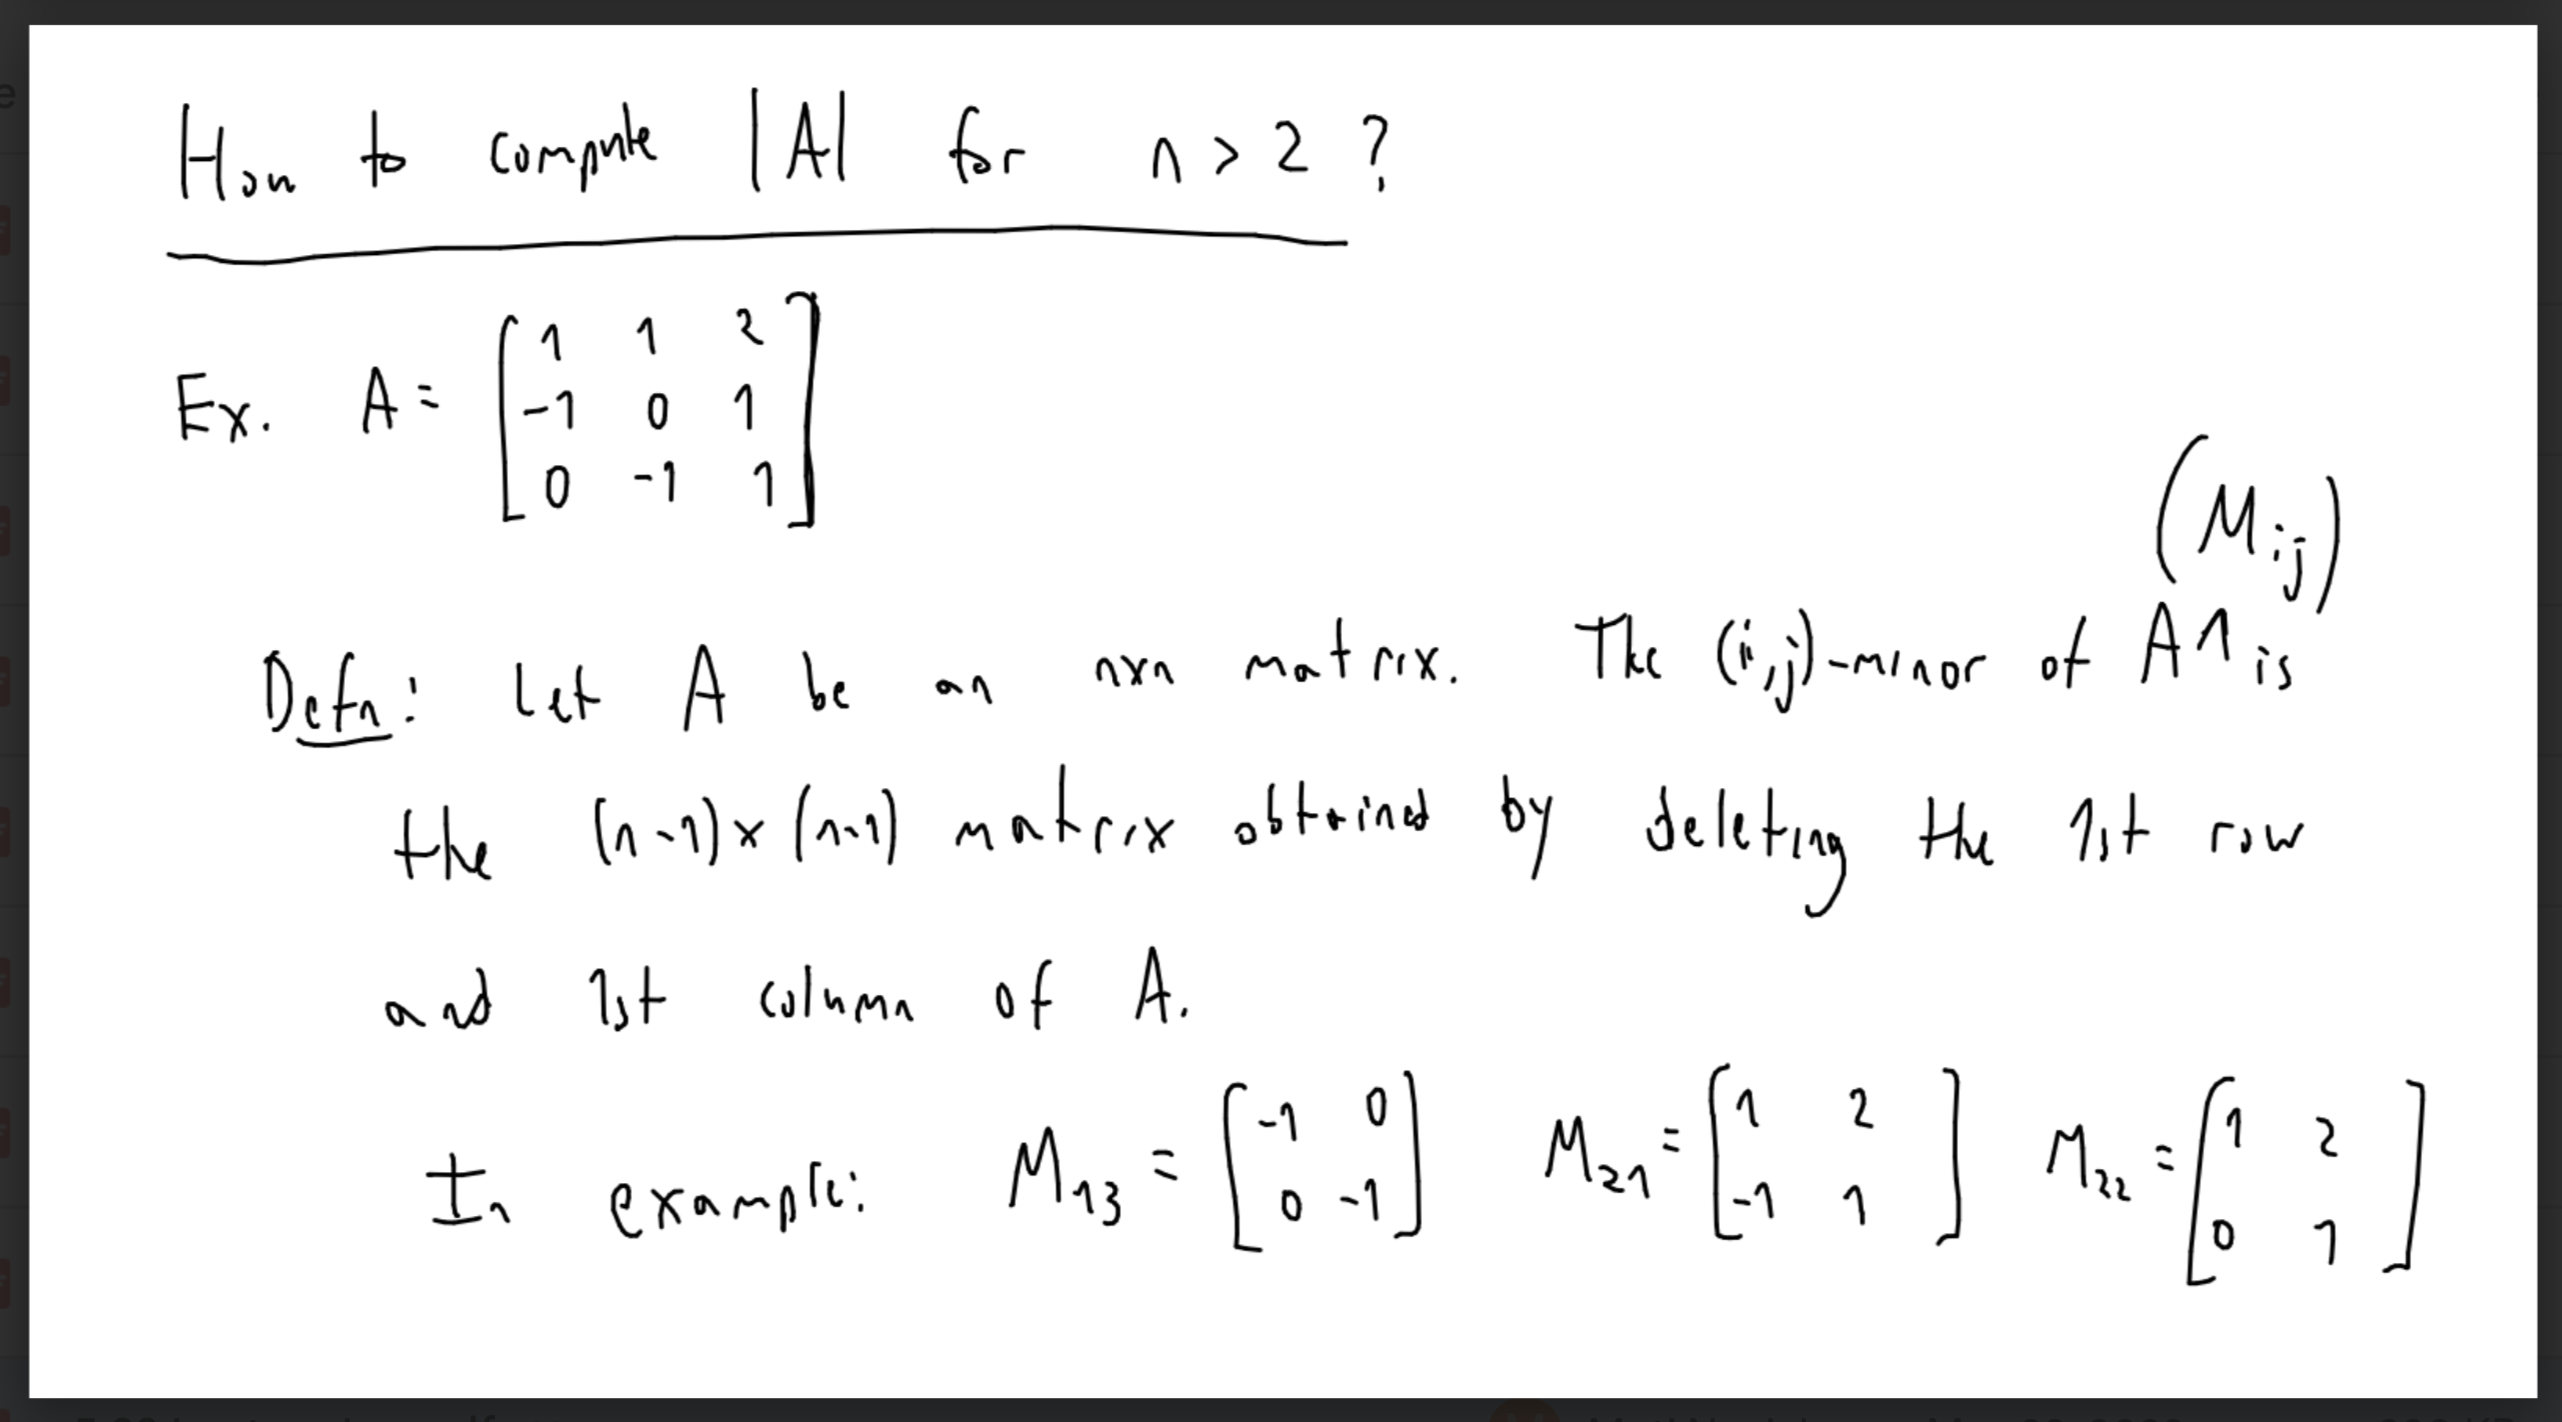 How to compute |A| for n > 2 ?
Ex. A = [ 1 1 2
-1 0 1
0 -1 1 ]
(Mij)
Defn: Let A be an nxn matrix. The (i,j)-minor of A ^ is
the (n-1) x (n-1) matrix obtained by deleting the 1st row
and 1st column of A.
In example: M13 = [ -1 0 M21 = [ 1 2 ] M22 = [ 1 2
0 -1 ] -1 1 0 1 ]